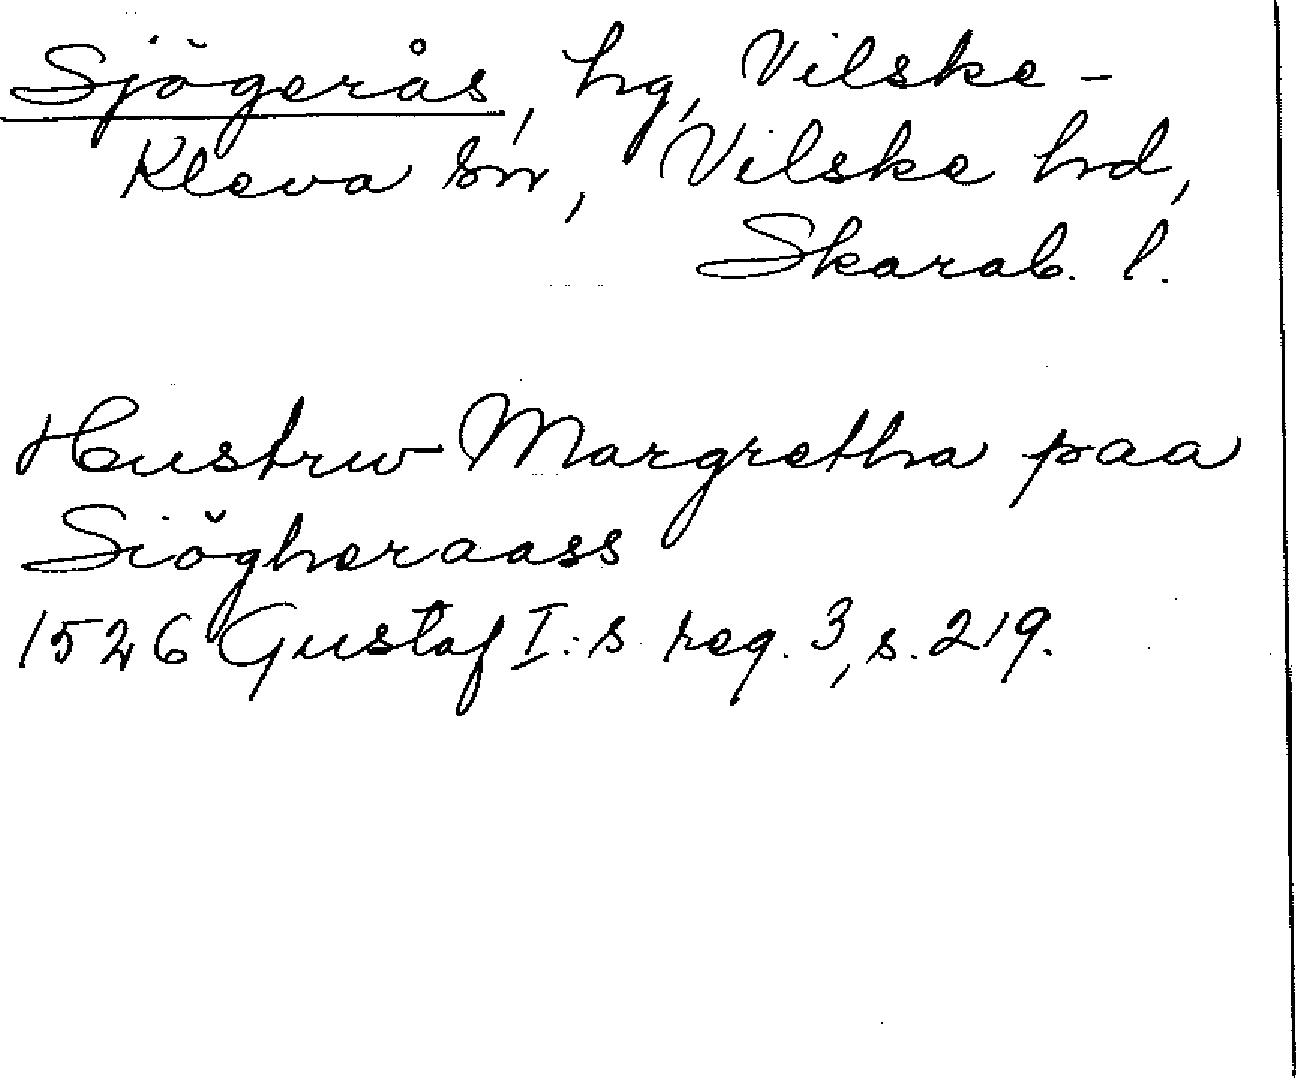 Sjögerås, hg, Vilske-
Kleva sn, Vilske hd,
Skarab. l.
Hustrw Margretha paa
Siögheraass
1526 Gustaf I:s reg. 3, s. 219.